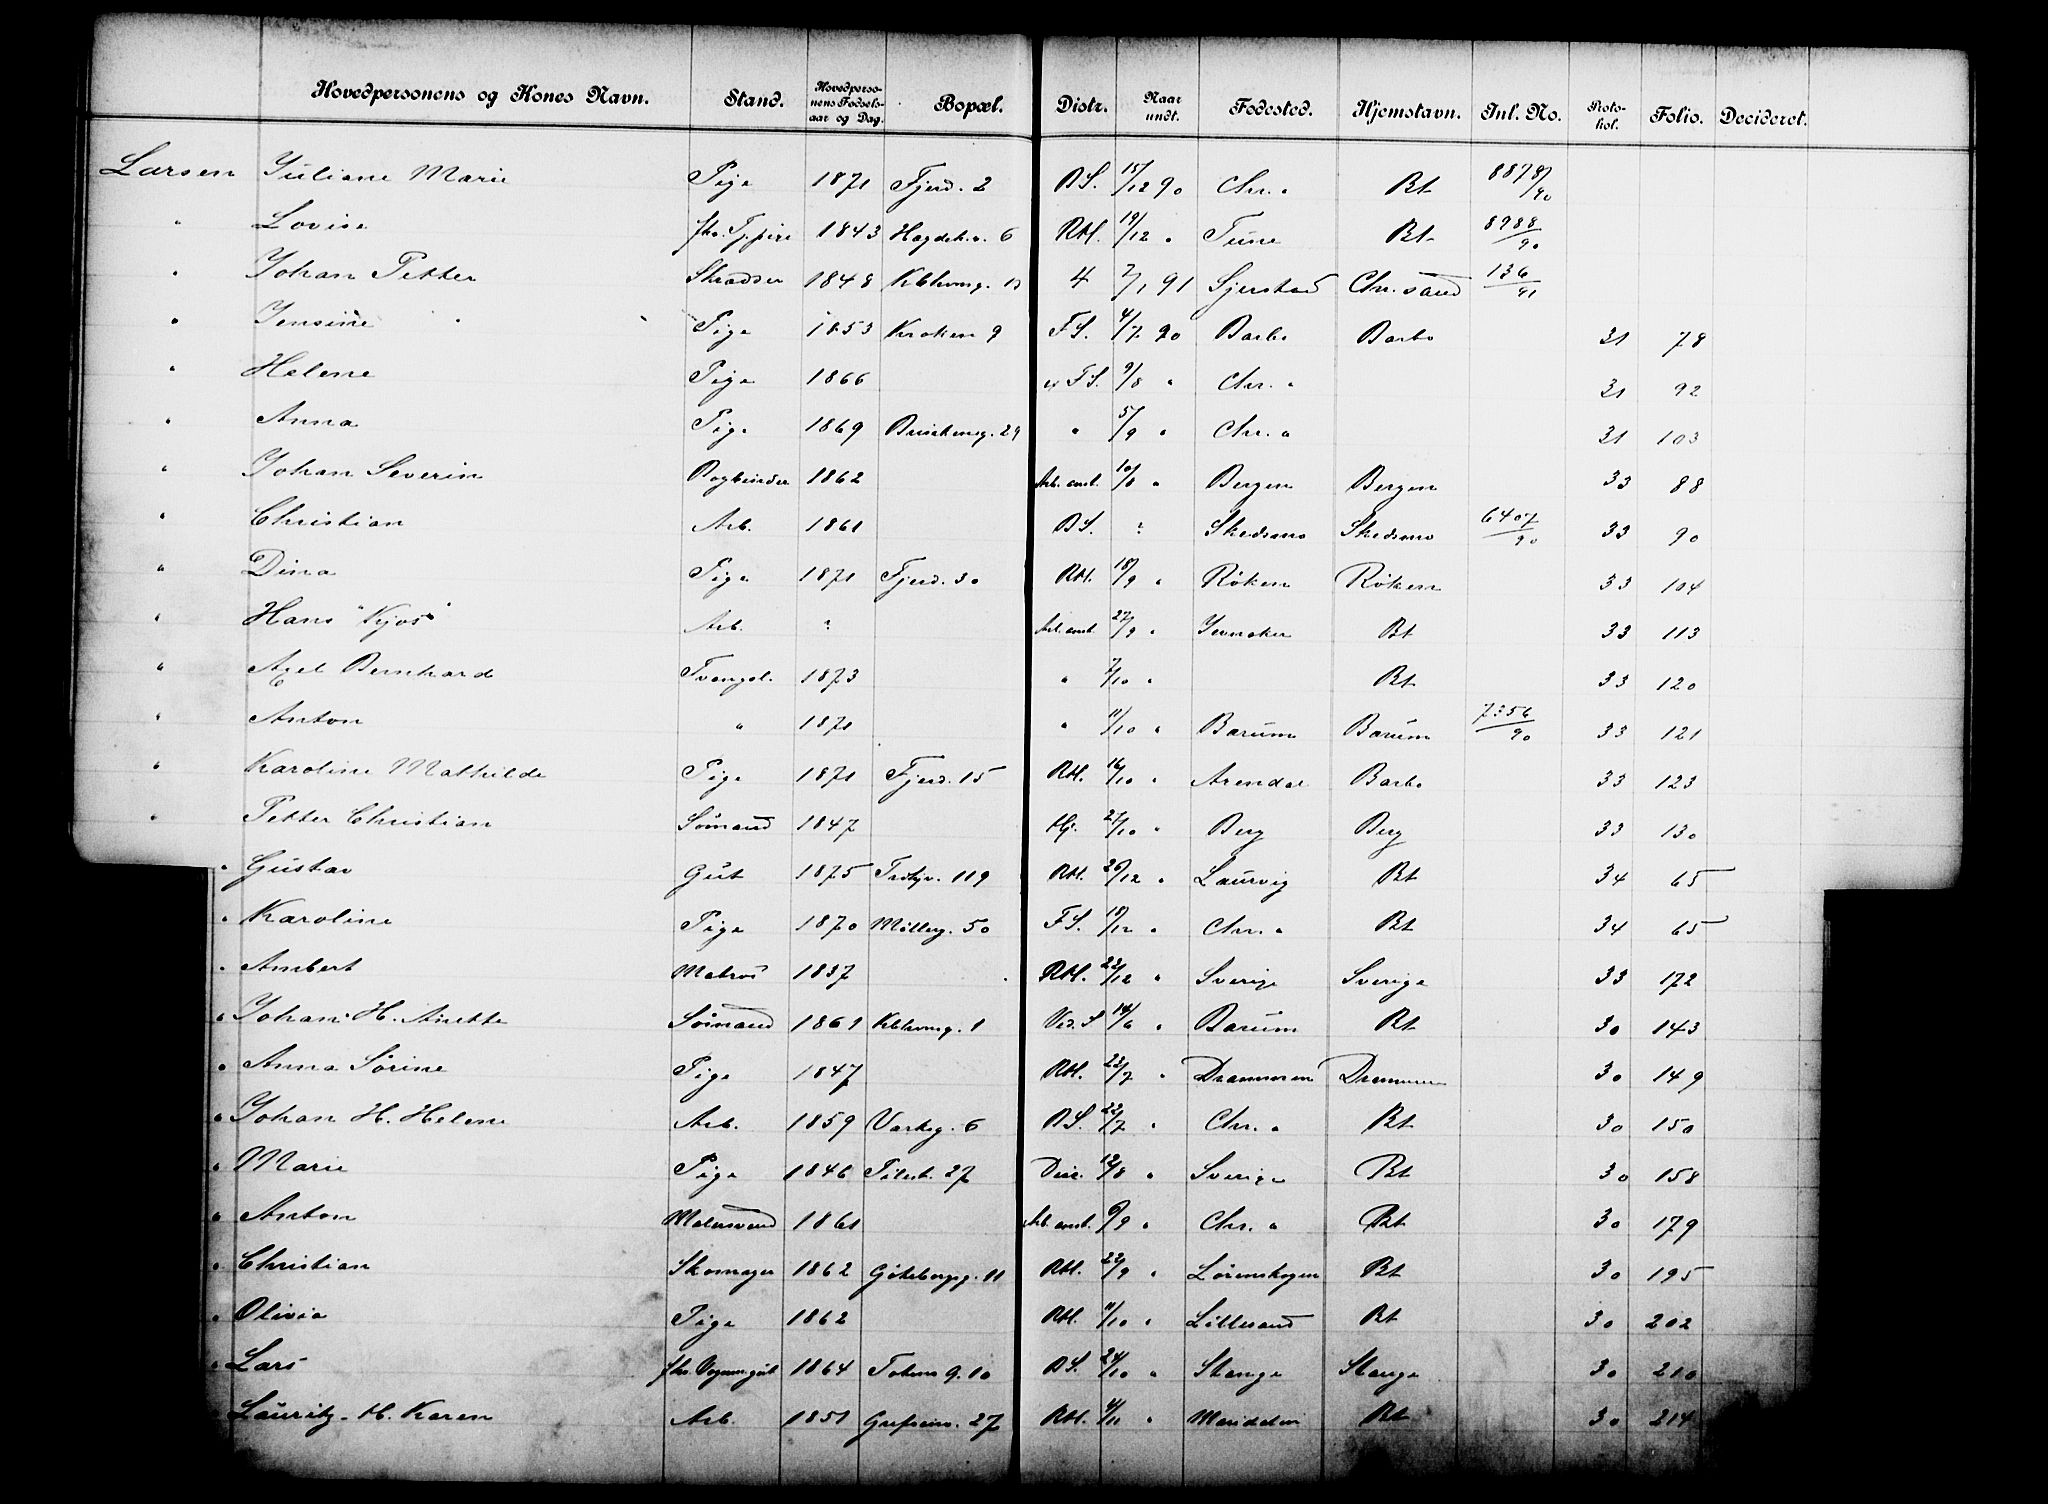 Hovedpersonens og Kones Navn. Stand. Hovedpersonens Fødselsaar og Dag. Bopæl. Distr. Naar undt. Fødested. Hjemstavn. Inl. No. Protokol. Folio. Decideret.
Larsen Juliane Marie Pige 1871 Fjerd. 2 BS. 15/12 90 Chr.a Bt 8878/90
" Lovise 1843 6 RM. 19/12 " Tune Bt 8988/90
" Johan Petter Skrædder 1848 4 7/1 91 Gjerstad Chr.sand 136/91
" Jensine Pige 1853 Kroken 9 FS. 4/7 90 Barbo Barbo 31 78
" Helene Pige 1866 FS. 9/8 " Chr.a 31 92
" Anna Pige 1869 29 " 5/9 " Chr.a 31 103
" Johan Severin Bogbinder 1862 Arb. anst. 10/8 " Bergen Bergen 33 88
" Christian Arb. 1861 BS. ? Skedsmo Skedsmo 6407/90 33 90
" Dina Pige 1871 Fjerd. 30 RM. 18/9 " Røken Røken 33 104
" Hans "Kjos" Arb. ? Arb. anst. 27/9 " Jevnaker Bt 33 113
" Axel Bernhard Tvangsl. 1873 " 7/10 " Bt 33 120
" Anton " 1871 " 11/10 " Bærum Bærum 7356/90 33 121
" Karoline Mathilde Pige 1871 Fjerd. 15 RM. 16/10 " Arendal Barbo 33 123
" Petter Christian Sømand 1847 27/10 " Berg Berg 33 130
" Gustav Gut 1875 119 RM. 20/12 " Laurvig Bt 34 65
" Karoline Pige 1870 Møllerg. 50 FS. 18/12 " Chr.a Bt 34 65
" Ambert Matros 1837 RM. 22/12 " Sverige Sverige 33 172
" Johan H. Anette Sømand 1869 1 Vid. S 14/6 " Bærum Bt 30 143
" Anna Sørine Pige 1847 RM. 22/7 " Drammen Drammen 30 149
" Johan H. Helene Arb. 1859 6 BS. 22/7 " Chr.a Bt 30 150
" Marie Pige 1846 Pilest. 27 12/8 " Sverige Bt 30 158
" Anton Malersvend 1861 Arb. anst. 6/9 " Chr.a Bt 30 179
" Christian Skomager 1862 Gøteborgsg. 11 RM. 22/9 " Lørenskogen Bt 30 195
" Olivia Pige 1862 RM. 11/10 " Lillesand Bt 30 202
" Lars fhv. Vognmgut 1864 Tøkens g. 10 BS. 24/10 " Stange Stange 30 210
" Lauritz. H. Karen Arb. 1851 Grefsenv. 27 RM. 4/11 " Maridalen Bt 30 214